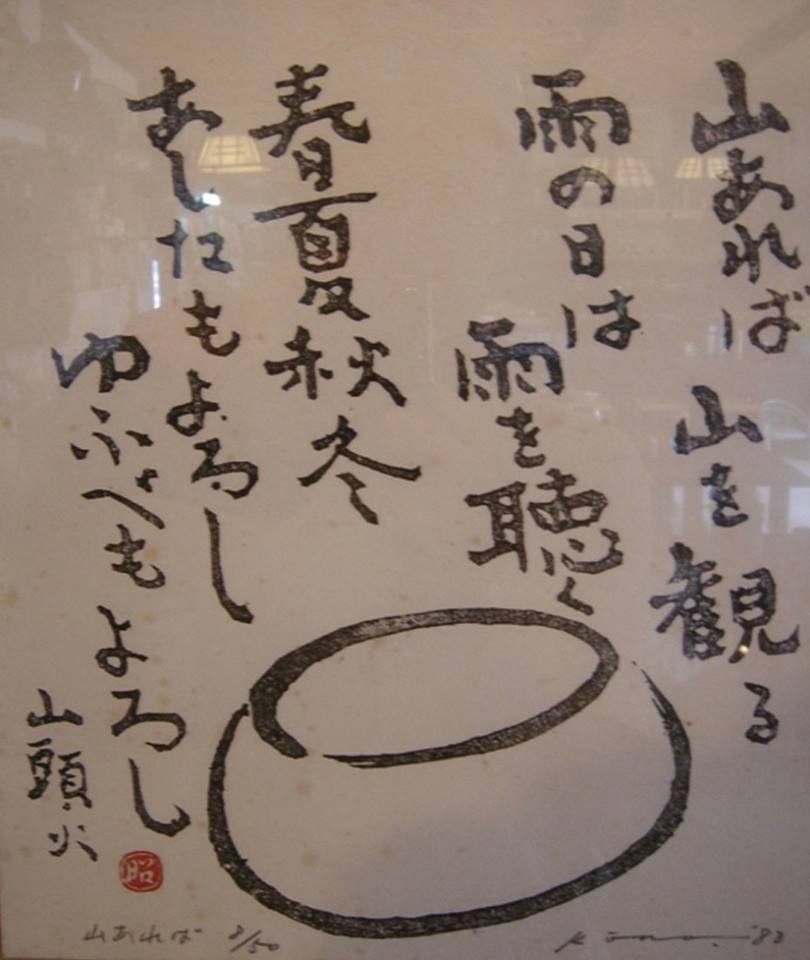 山あれば 山を観る
雨の日は 雨を聴く
春夏秋冬
あしたもよろし
ゆふべもよろし
山頭火
昭
山あれば 8/50
Kōno. '83